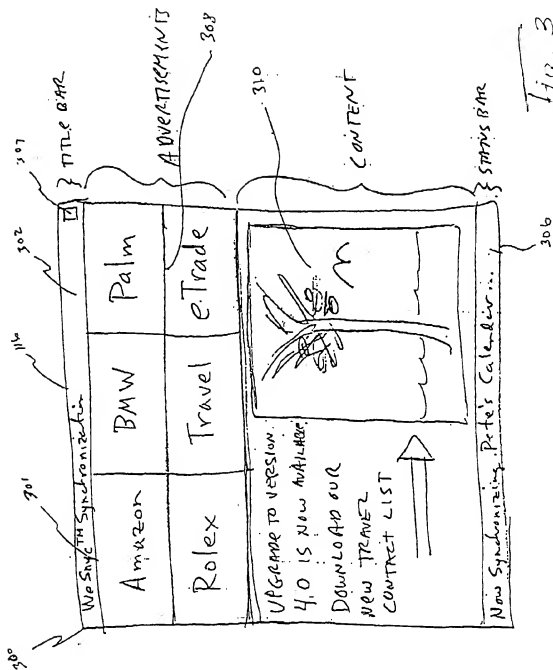 300
301
116
302
WeSnyc™ Synchronization
TITLE BAR
Amazon
BMW
Palm
ADVERTISEMENTS
Rolex
Travel
e.Trade
308
UPGRADE TO VERSION
4.0 IS NOW AVAILABLE
DOWNLOAD OUR
NEW TRAVEL
CONTACT LIST
310
CONTENT
Now Synchronizing Pete's Calendar...
STATUS BAR
306
Fig. 3